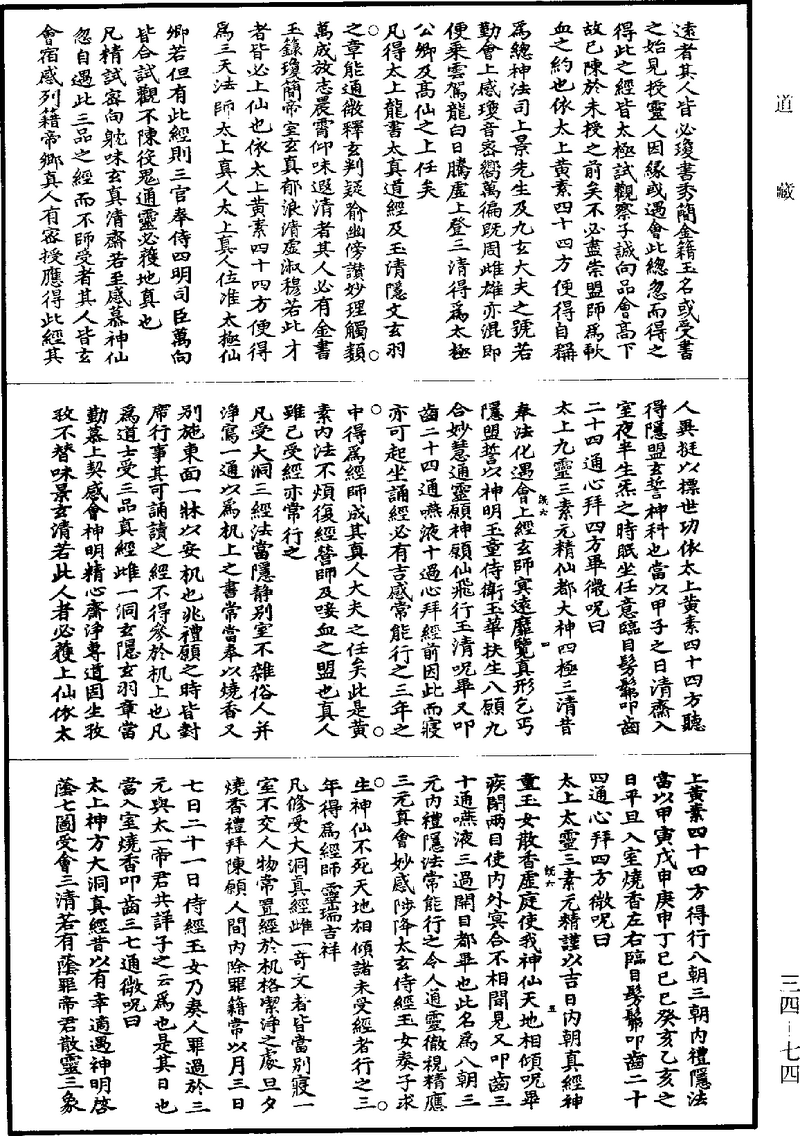 道藏
三四—七四
遠者其人皆必瓊書秀簡金籍玉名或受書
之始見授靈人因緣或遇會此總忽而得之
得此之經皆太極試觀察子誠向品會高下
故已陳於未授之前矣不必盡崇盟師爲軟
血之約也依太上黃素四十四方便得自稱
爲總神法司上景先生及九玄大夫之號若
勤會上感瓊音密嚮萬徧旣周雌雄亦混即
便乘雲駕龍白日騰虛上登三清得爲太極
公卿及高仙之上任矣
凡得太上龍書太真道經及玉清隱文玄羽
之章能通微釋玄判疑喻幽傍讚妙理觸類
萬成放志晨霄仰味遐清者其人必有金書
玉籙瓊簡帝室玄真郁浪清虛淑穆若此才
者皆必上仙也依太上黃素四十四方便得
爲三天法師太上真人太上真人位准太極仙
卿若但有此經則三官奉侍四明司臣萬向
皆合試觀不陳役鬼通靈必獲地真也
凡精試密向躭味玄真清齋若至感慕神仙
忽自遇此三品之經而不師受者其人皆玄
會宿感列籍帝鄉真人有密授應得此經其
人異挺以摽世功依太上黃素四十四方聽
得隱盟玄誓神科也當以甲子之日清齋入
室夜半生炁之時眠坐任意臨目髣髴叩齒
二十四通心拜四方畢微呪曰
太上九靈三素元精仙都大神四極三清昔
奉法化遇會上經玄師冥遠靡覽真形乞丐
隱盟誓以神明玉童侍衛玉華扶生八願九
合妙慧通靈願神願仙飛行玉清呪畢又叩
齒二十四通嚥液十過心拜經前因此而寢
亦可起坐誦經必有吉感常能行之三年之
中得爲經師成其真人大夫之任矣此是黃
素內法不煩復經營師及唼血之盟也真人
雖已受經亦常行之
凡受大洞三經法當隱靜別室不雜俗人并
淨寫一通以爲机上之書常當奉以燒香又
別施東面一牀以安机也兆禮願之時皆對
席行事其可誦讀之經不得參於机上也凡
爲道士受三品真經雌一洞玄隱玄羽章當
勤慕上契感會神明精心齋淨尊道固生孜
孜不替味景玄清若此人者必獲上仙依太
上黃素四十四方得行八朝三朝內禮隱法
當以甲寅戊申庚申丁巳己巳癸亥乙亥之
日平旦入室燒香左右臨目髣髴叩齒二十
四通心拜四方微呪曰
太上太靈三素元精謹以吉日內朝真經神
童玉女散香虛庭使我神仙天地相傾呪畢
疾閉兩目使內外冥合不相聞見又叩齒三
十通嚥液三過開目都畢也此名爲八朝三
元內禮隱法常能行之令人通靈徹視精應
三元真會妙感陟降太玄侍經玉女奏子求
生神仙不死天地相傾諸未受經者行之三
年得爲經師靈瑞吉祥
凡修受大洞真經雌一奇文者皆當別寢一
室不交人物常置經於机格潔淨之處旦夕
燒香禮拜陳願人間內除罪籍常以月三日
七日二十一日侍經玉女乃奏人罪過於三
元與太一帝君共詳子之云爲也是其日也
當入室燒香叩齒三七通微呪曰
太上神方大洞真經昔以有幸適遇神明啓
蔭七圖受會三清若有蔭罪帝君散靈三象